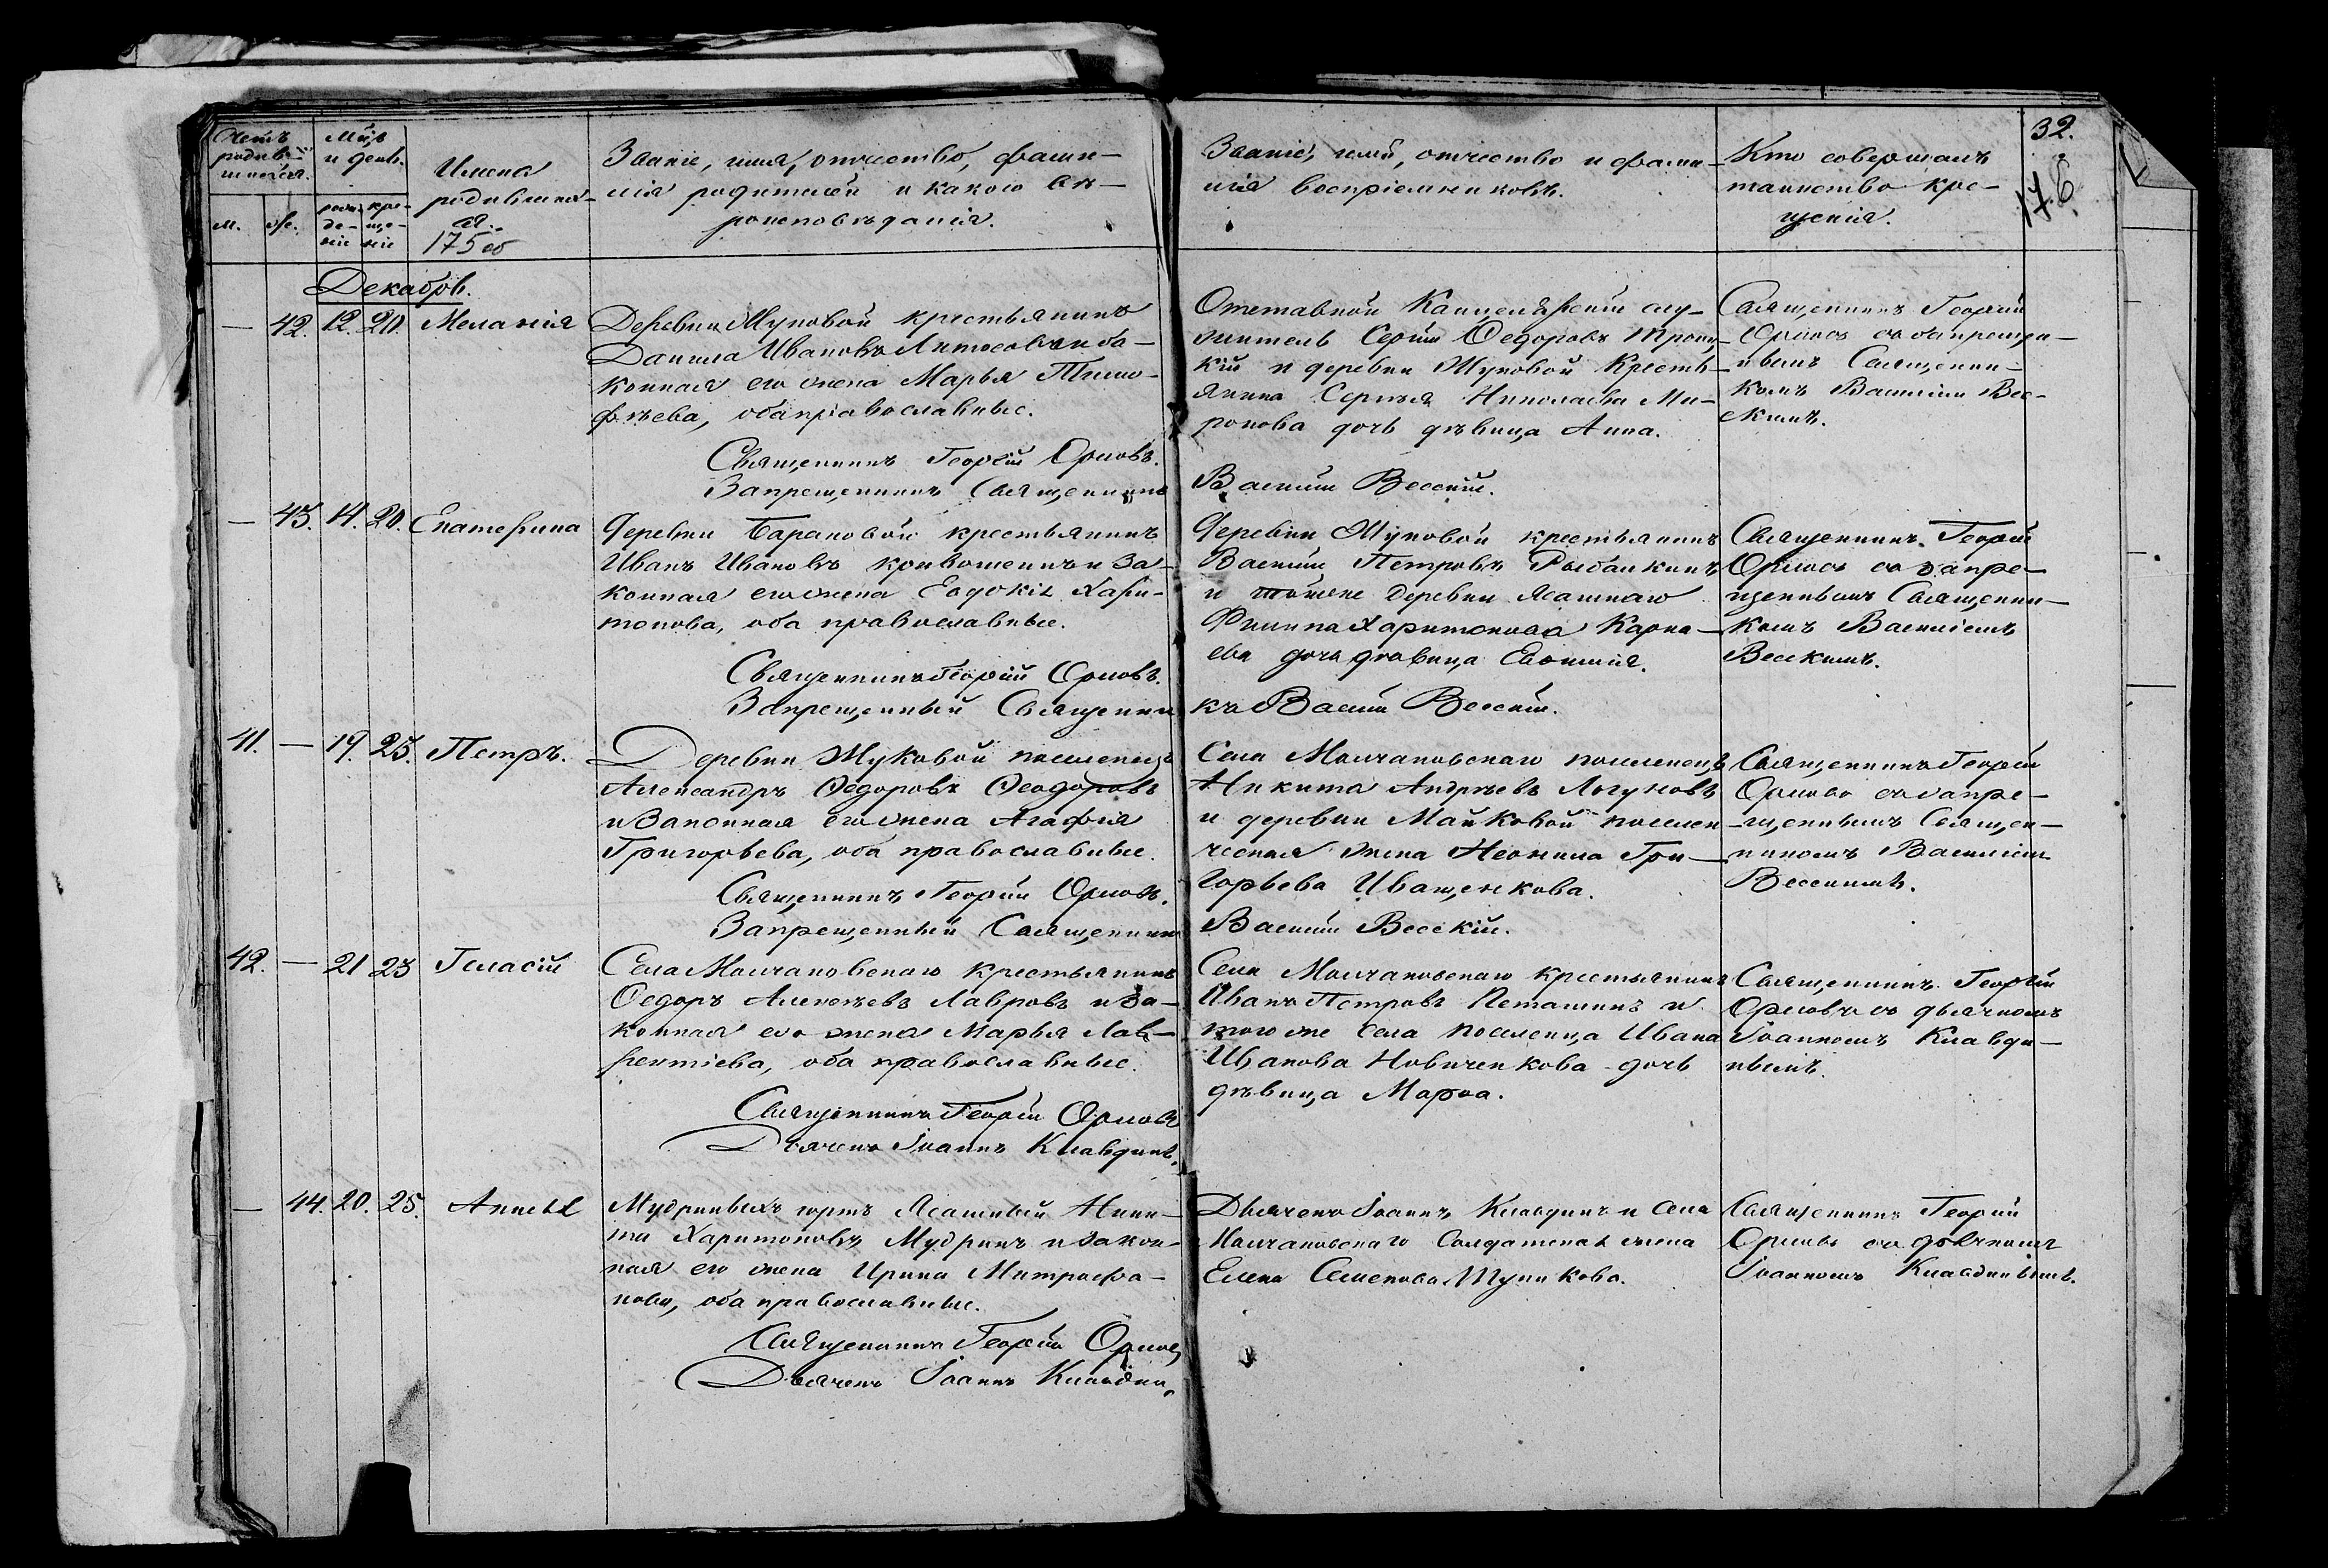 Счетъ
родив-
шихся.
Мѣс.
и день.
м.
ж.
рож-
де-
ніе
кре-
ще-
ніе
Имена
родивших-
ся.
175 об
Званіе, имя, отчество, фами-
лія родителей и какого вѣ-
роисповѣданія.
Званіе, имя, отчество и фами-
лія воспріемниковъ.
Кто совершалъ
таинство кре-
щенія.
32.
176
Декабрь.
— 42. 12. 20. Меланія
Деревни Жуковой крестьянинъ
Данила Ивановъ и за-
конная его жена Марья Тимо-
фѣева, оба православные.
Священникъ Георгій Орловъ.
Запрещенникъ Священникъ
Отставной Канцелярскій слу-
житель Сергій Ѳедоровъ Троиц-
кій и деревни Жуковой Кресть-
янина Сергѣя Николаева Ми-
ронова дочь дѣвица Анна.
Василій Весскій.
Священникъ Георгій
Орловъ съ запрещен-
нымъ Священни-
комъ Василіемъ Вес-
скимъ.
— 43. 14. 20. Екатерина
Деревни Барановой крестьянинъ
Иванъ Ивановъ Кривошеинъ и за-
конная его жена Евдокія Хари-
тонова, оба православные.
Священникъ Георгій Орловъ.
Запрещенный Священни
Деревни Жуковой крестьянинъ
Василій Петровъ Рыбалкинъ
и тойже деревни Ясашнаго
Филиппа Харитонова Карна-
ева дочь дѣвица Евфимія.
къ Василій Весскій.
Священникъ Георгій
Орловъ съ запре-
щеннымъ Священни-
комъ Василіемъ
Весскимъ.
41. — 19. 23. Петръ.
Деревни Жуковой поселенецъ
Александръ Ѳедоровъ Ѳеодоровъ
и Законная его жена Агафія
Григорьева, оба православные.
Священникъ Георгій Орловъ.
Запрещенный Священникъ
Села Молчановскаго поселенецъ
Никита Андрѣевъ Логуновъ
и деревни Майковой поселен-
ческая жена Неонила Гри-
горьева Иващенкова.
Василій Весскій.
Священникъ Георгій
Орловъ съ запре-
щеннымъ Священ-
никомъ Василіемъ
Весскимъ.
42. — 21 23 Геласій
Села Молчановскаго крестьянинъ
Ѳедоръ Алексѣевъ Лавровъ и за-
конная его жена Марья Лав-
рентіева, оба православные.
Священникъ Георгій Орловъ
Дьячекъ Іоаннъ Клавдинъ.
Села Молчановскаго крестьянинъ
Иванъ Петровъ Петашинъ и
того же села поселенца Ивана
Иванова Новиченкова дочь
дѣвица Марѳа.
Священникъ Георгій
Орловъ съ дьячкомъ
Іоанномъ Клавди-
нымъ.
— 44. 20. 25. Анисья
Мудриныхъ юртъ Ясашный Ники-
та Харитоновъ Мудринъ и закон-
ная его жена Ирина Митрофа-
нова, оба православные.
Священникъ Георгій Орловъ
Дьячекъ Іоаннъ Клавдин.
Дьячекъ Іоаннъ Клавдинъ и села
Молчановскаго Солдатская жена
Елена Семенова Тупикова.
Священникъ Георгій
Орловъ съ дьячкомъ
Іоанномъ Клавдинымъ.